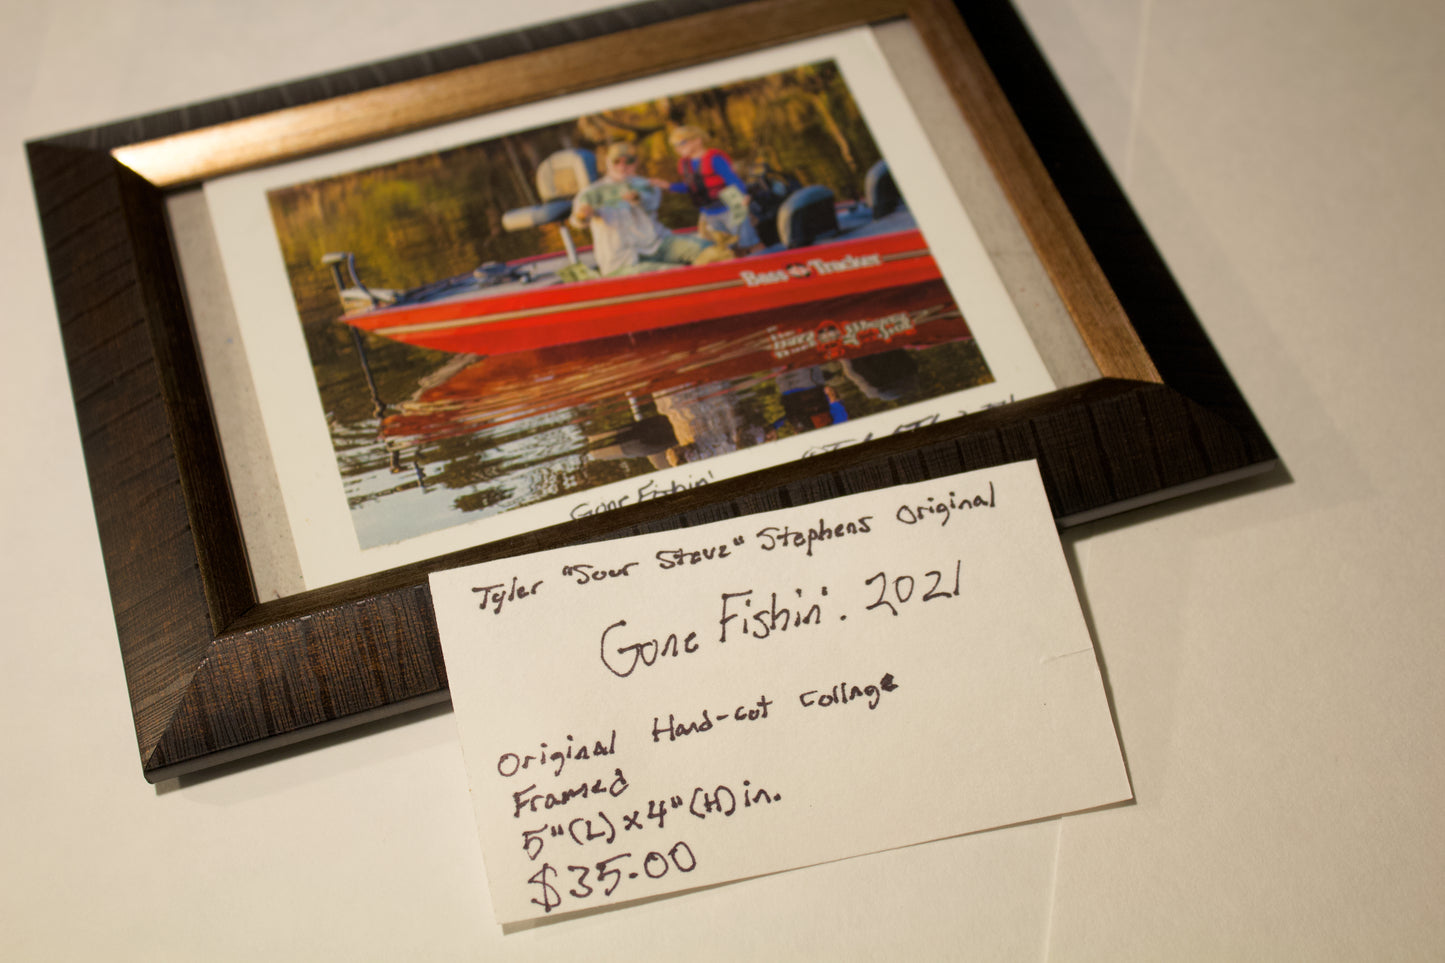 Bass Tracker
Gone Fishin'
Tyler "Sour Steve" Stephens Original
Gone Fishin'. 2021
Original Hand-cut Collage
Framed
5"(L) x 4"(H) in.
$35.00